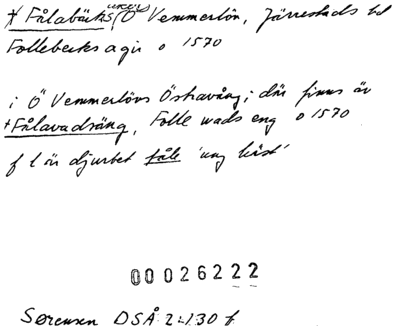 * Fålabäcks(åkers) Ö Vemmerlöv, Järrestads hd
Follebecks agir o 1570
i Ö Vemmerlövs Östravång; där finns äv
+ Fålavadsäng, Folle wads eng o 1570
f l är djurbet fåle 'ung häst'
00026222
Sørensen DSÅ 2:130 f